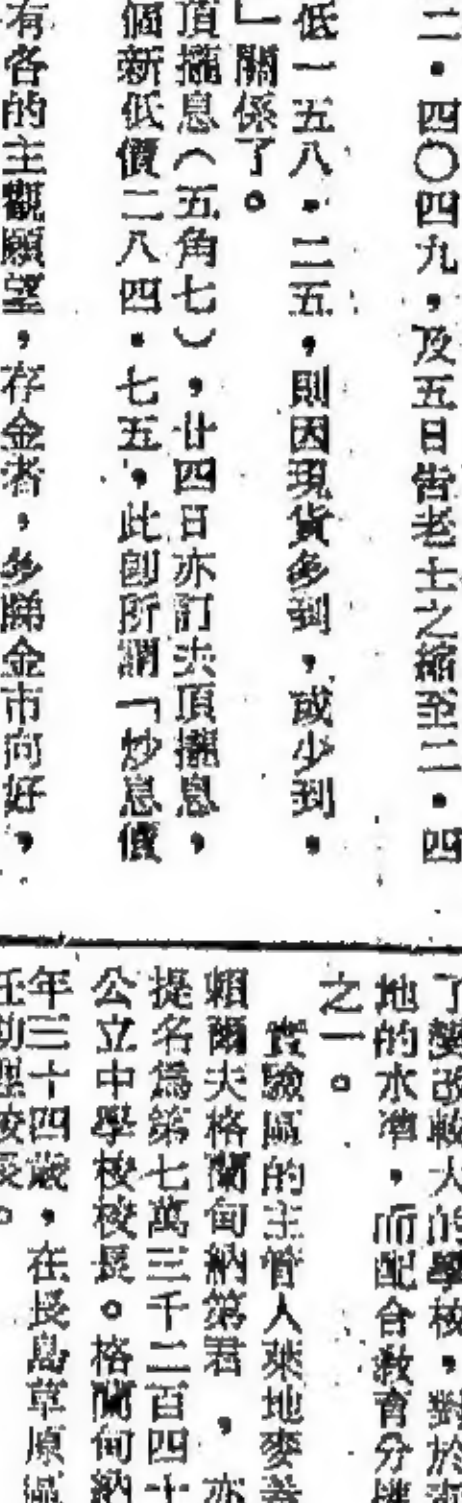 二・四〇四九，及五日告老士之縮至二・四
低一五八・二五，則因現貨多到，或少到，
」關係了。
頂攏息（五角七），廿四日亦訂去頂攏息，
個新低價二八四・七五，此卽所謂「炒息價
有各的主觀願望，存金者，多睇金市向好，
了變改較大的學校，對於
地的水準，而配合敎育分
之一。
實驗區的主管人萊地麥
賴爾夫格蘭甸納第君，亦
提名爲第七萬三千二百四十
公立中學校校長。格蘭甸納
年三十四歲，在長島草原區
任助理校長。